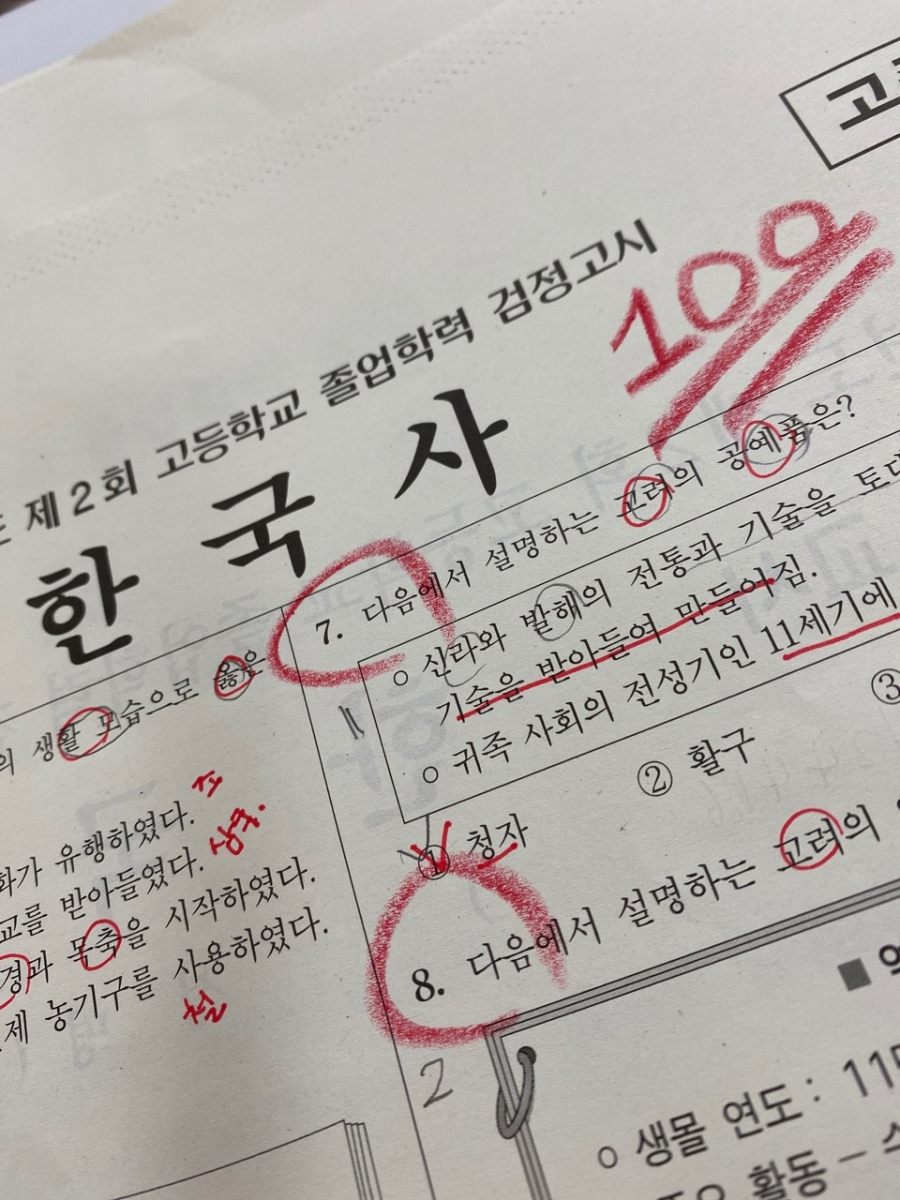 고
제2회 고등학교 졸업학력 검정고시
100
한국사
의 생활 모습으로 옳은
화가 유행하였다. 조
교를 받아들였다. 삼국.
경과 목축을 시작하였다.
제 농기구를 사용하였다.
철
7. 다음에서 설명하는 고려의 공예품은?
○ 신라와 발해의 전통과 기술을 토대
기술을 받아들여 만들어짐.
○ 귀족 사회의 전성기인 11세기에
① 청자
② 활구
③
8. 다음에서 설명하는 고려의
2
■
○ 생몰 연도 : 11
활동 -